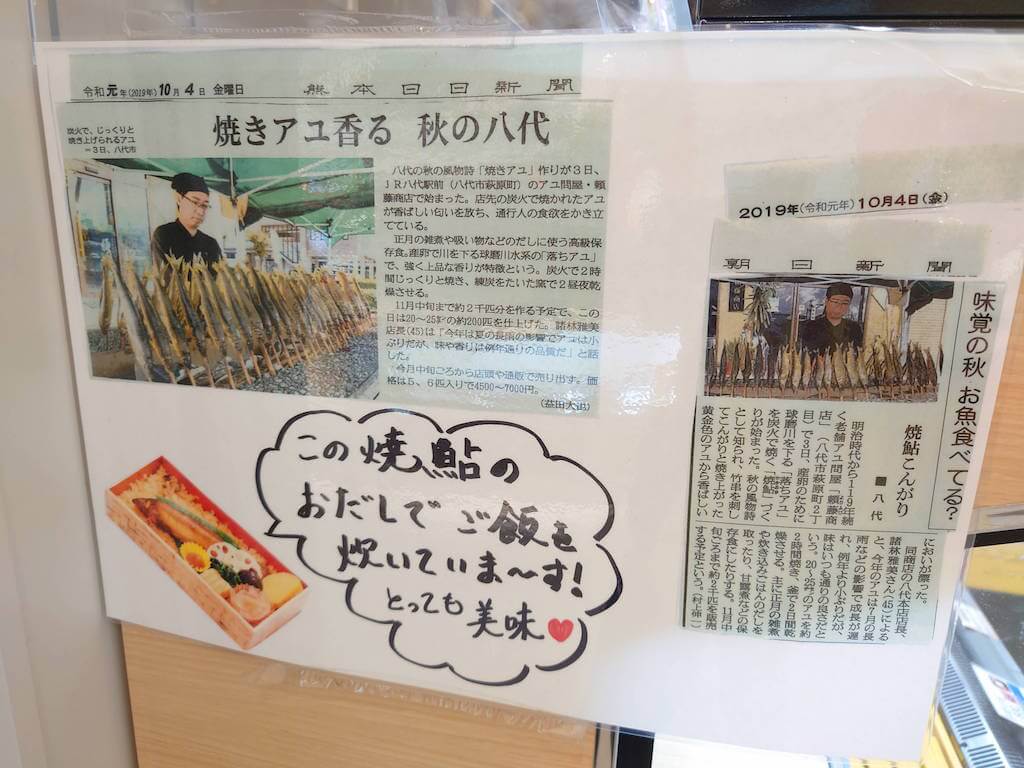 令和元年(2019年)10月4日 金曜日
熊本日日新聞
焼きアユ香る 秋の八代
炭火で、じっくりと
焼き上げられるアユ
=3日、八代市
八代の秋の風物詩「焼きアユ」作りが3日、
JR八代駅前(八代市萩原町)のアユ問屋・頼
藤商店で始まった。店先の炭火で焼かれたアユ
が香ばしい匂いを放ち、通行人の食欲をかき立
てている。
正月の雑煮や吸い物などのだしに使う高級保
存食。産卵で川を下る球磨川水系の「落ちアユ」
で、強く上品な香りが特徴という。炭火で2時
間じっくりと焼き、練炭をたいた窯で2昼夜乾
燥させる。
11月中旬まで約2千匹分を作る予定で、この
日は20〜25㌢の約200匹を仕上げた。諸林雅美
店長(45)は「今年は夏の長雨の影響でアユは小
ぶりだが、味や香りは例年通りの品質だ」と話
した。
今月中旬ごろから店頭や通販で売り出す。価
格は5、6匹入りで4500〜7000円。
(益田大也)
この焼鮎の
おだしでご飯を
炊いていま〜す!
とっても美味♥
2019年(令和元年)10月4日(金)
朝日新聞
味覚の秋 お魚食べてる?
焼鮎こんがり
■八代
明治時代から119年続
く老舗アユ問屋「頼藤商
店」(八代市萩原町2丁
目)で3日、産卵のために
球磨川を下る「落ちアユ」
を炭火で焼く「焼鮎」づく
りが始まった。秋の風物詩
として知られ、竹串を刺し
てこんがりと焼き上がった
黄金色のアユから香ばしい
においが漂った。
同商店の八代本店店長、
諸林雅美さん(45)による
と、今年のアユは7月の長
雨などの影響で成長が遅
れ、例年より小ぶりだが、
味はいつも通りの良さだと
いう。20〜25㌢のアユを約
2時間焼き、釜で2日間乾
燥させる。主に正月の雑煮
や炊き込みごはんのだしを
取ったり、甘露煮などの保
存食にしたりする。11月中
旬ごろまで約2千匹を販売
する予定という。(村上伸一)